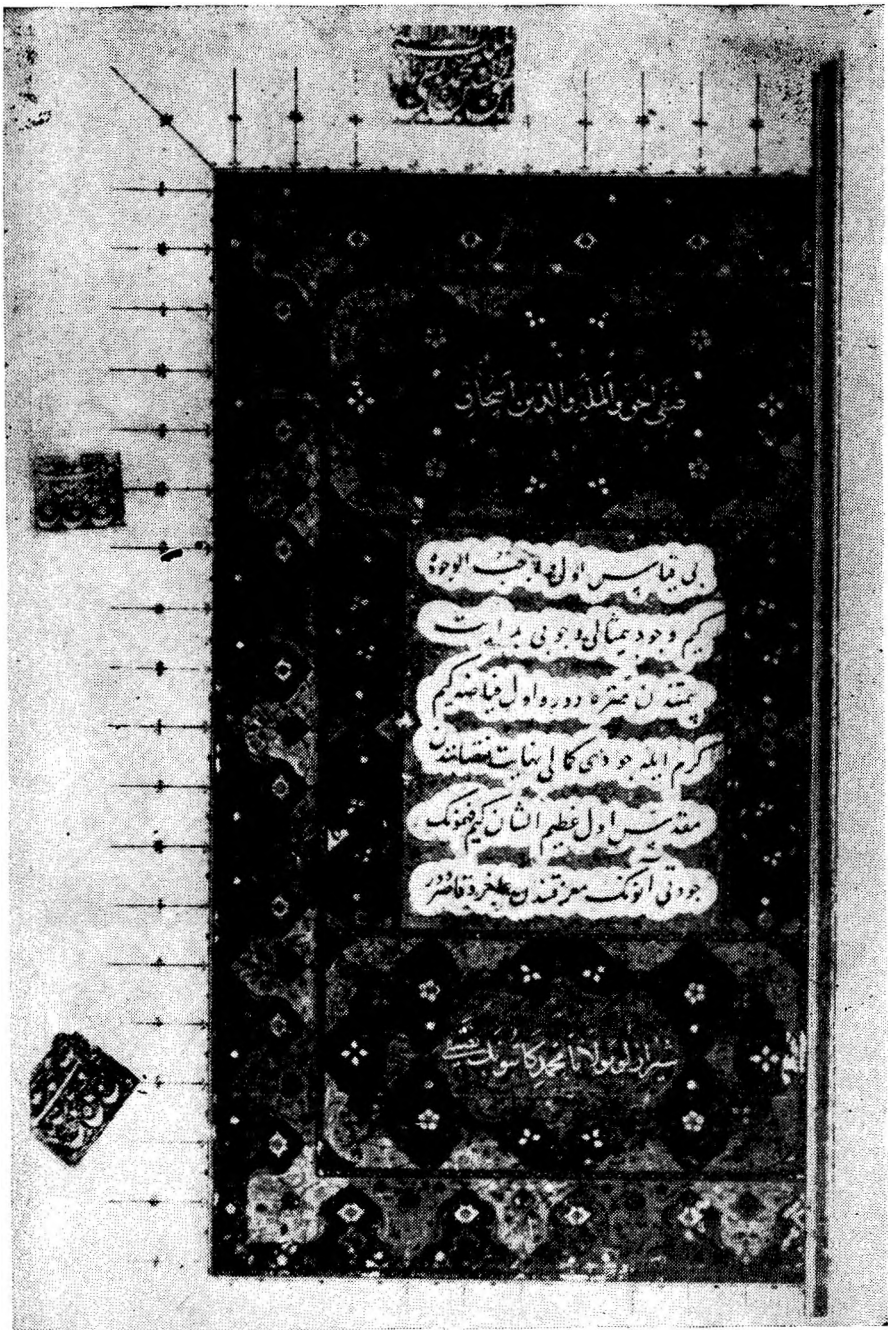 صفی الحق والملة والدین اسحاق
بی قیاس اول واجب الوجوده
کیم وجود بیمثالی وجوبی بدایت
منزه دورو اول فیاضه کیم
کرم ایله جودی کمالی نهایت نقصانندن
مقدس اول عظیم الشان کیم فهمونک
جودتی آنونک معرفتندن قاصردور
شیرازلو مولانا محمد کاتبونک